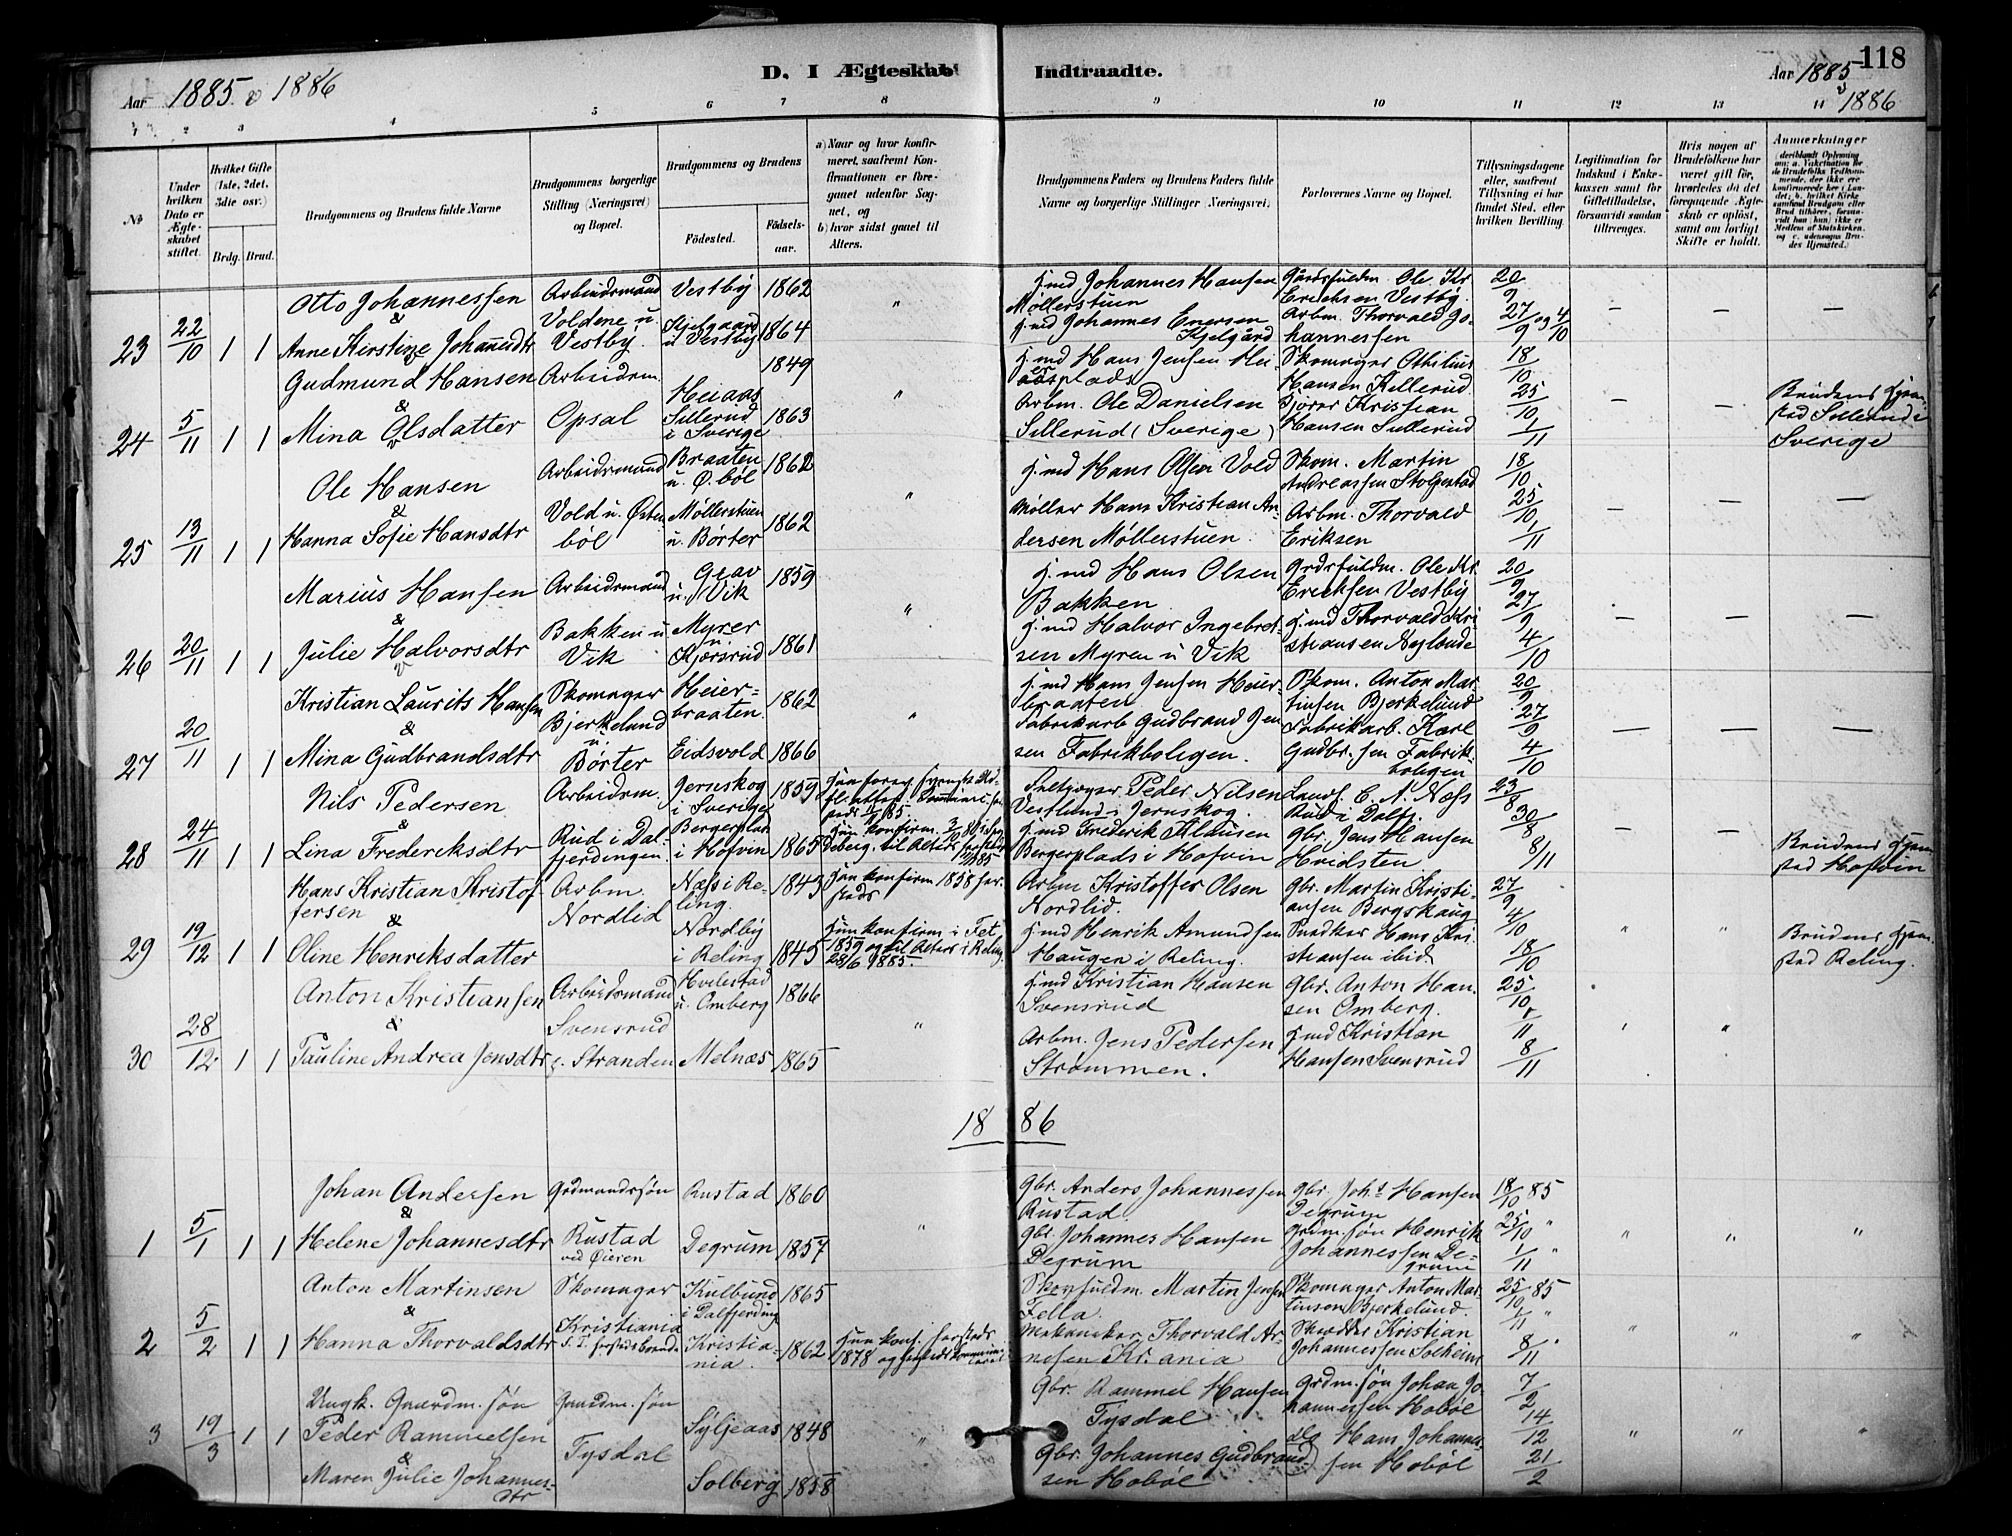 118
Aar 1885 & 1886
D. I Ægteskab Indtraadte.
Aar 1885 & 1886
1 2 3 4 5 6 7 8 9 10 11 12 13 14
No
Under hvilken Dato er Ægteskabet stiftet.
Hvilket Gifte (1ste, 2det, 3die osv.)
Brdg. Brud.
Brudgommens og Brudens fulde Navne
Brudgommens borgerlige Stilling (Næringsvei) og Bopæl.
Brudgommens og Brudens
Fødested.
Fødselsaar.
a) Naar og hvor konfirmeret, saafremt Konfirmationen er foregaaet udenfor Sognet, og
b) hvor sidst gaaet til Alters.
Brudgommens Faders og Brudens Faders fulde Navne og borgerlige Stillinger (Næringsvei)
Forlovernes Navne og Bopæl.
Tillysningsdagene eller, saafremt Tillysning ei har fundet Sted, efter hvilken Bevilling.
Legitimation for Indskud i Enkekassen samt for Giftetilladelse, forsaavidt saadan tiltrænges.
Hvis nogen af Brudefolkene har været gift før, hvorledes da det foregaaende Ægteskab er opløst, samt om lovligt Skifte er holdt.
Anmærkninger
23 22/10 1 1
Otto Johannessen & Anne Kirstine Johannesdtr
Arbeidsmand Voldene u Vestby
Vestby 1862
Kjelgaard u Vestby 1864
"
H.md Johannes Hansen Møllerstuen
H.md Johannes Enersen Kjelgård
Gårdsfuldm. Ole Kr Erichsen Vestby.
Arbm. Thorvald Johannessen
20/9 27/9 og 4/10
24 5/11 1 1
Gudmund Hansen & Mina Olsdatter
Arbeidsm. Opsal
Heiaas 1849
Sillerud i Sverige 1863
"
Arbm. Ole Danielsen Sillerud (Sverige)
Skomager Othilius Hansen Killerud
Bjører Kristian Hansen Sillerud
18/10 25/10 1/11
Brudens Hjemsted Sillerud i Sverige
25 13/11 1 1
Ole Hansen & Hanna Sofie Hansdtr
Arbeidsmand Vold u. Østenbøl
Braaten u. Ø.bøl 1862
Møllerstuen u. Børter 1862
"
H.md Hans Olsen Vold
Møller Hans Kristian Andersen Møllerstuen
Skom. Martin Andreassen Stolgestad
Arbm. Thorvald Eriksen
18/10 25/10 1/11
26 20/11 1 1
Marius Hansen & Julie Halvorsdtr
Arbeidsmand Bakken u Vik
Grav u. Vik 1859
Myrer u. Kjorsrud 1861
"
H.md Hans Olsen Bakken
H.md Halvor Ingebretsen Myren u Vik
Grdsfuldm. Ole Kr. Ericksen Vestby
H.md Thorvald Kristiansen Nylende
20/9 27/9 4/10
27 20/11 1 1
Kristian Laurits Hansen & Mina Gudbrandsdtr
Skomager Bjerkelund u. Børter
Heierbraaten. 1862
Eidsvold 1866
"
H.md Hans Jensen Heierbraaten
Fabrikarb Gudbrand Jensen Fabrikboligen.
Skom. Anton Martinsen Bjerkelund
Fabrikarb. Karl Gudbr.sen Fabrikboligen
20/9 27/9 4/10
28 24/11 1 1
Nils Pedersen & Lina Frederiksdtr
Arbeidsm. Rud i Dalfjerdingen
Jernskog i Sverige 1859
Bergerplads i Hofvin 1865
Peder Nilsen Vestlund i Jernskog.
H.md Frederik Klausen Bergerplads i Hofvin
Landh. C. A. Næss Rud i Dalfj.
Gbr. Jens Hansen Hvidsten
23/8 30/8 8/11
Brudens Hjemsted Hofvin
29 19/12 1 1
Hans Kristian Kristoffersen & Oline Henriksdatter
Arbm. Nordlid
Næss i Reling. 1843
Nordby i Reling 1845
Han konfirm 1858 hersteds
Hun konfirm i Fet 1859 og til Alters i Reling 28/6 1885.
Arbm Kristoffer Olsen Nordlid.
H.md Henrik Amundsen Haugen i Reling.
Gbr. Martin Kristiansen Bergskaug
Snedker Hans Kristiansen ibid.
27/9 4/10 18/10
Brudens Hjemsted Reling.
30 28/12 1 1
Anton Kristiansen & Pauline Andrea Jensdtr
Arbeidsmand Svensrud g. Stranden
Hvilestad u. Omberg 1866
Melnæs 1865
"
H.md Kristian Hansen Svensrud
Arbm. Jens Pedersen Strømmen.
Gbr. Anton Hansen Omberg.
H.md Kristian Hansen Svensrud
25/10 1/11 8/11
1886
1 5/1 1 1
Johan Andersen & Helene Johannesdtr
Grdmandssøn Rustad ved Øieren
Rustad 1860
Degrum 1857
"
Gbr. Anders Johannessen Rustad.
Gbr. Johannes Hansen Degrum
Gbr. Johs Hansen Degrum
Grdm.søn Henrik Johannessen Degrum
18/10 85 25/10 " 1/11 "
2 5/2 1 1
Anton Martinsen & Hanna Thorvaldsdtr
Skomager Kristiania
Kulbund i Dalfjerding 1865
Kristiania. 1862
Hun konf. hersteds 1878
Martin Jensen Fella.
Mekaniker Thorvald Arnesen Kr.ania
Skomager Anton Martinsen Bjerkelund.
Skrædder Kristian Johannessen Solheim
25/10 85 1/11 " 8/11 "
3 19/3 1 1
Ungk. Gaardm.søn Peder Rammelsen & Maren Julie Johannesdtr
Gaardm.søn Tysdal
Syljeaas 1848
Solberg 1858
"
Gbr. Rammel Hansen Tysdal
Gbr. Johannes Gudbrandsen Hobøl
Grdm.søn Johan Johannessen Hobøl
do Hans Johannessen Hobøl
7/2 14/12 21/2